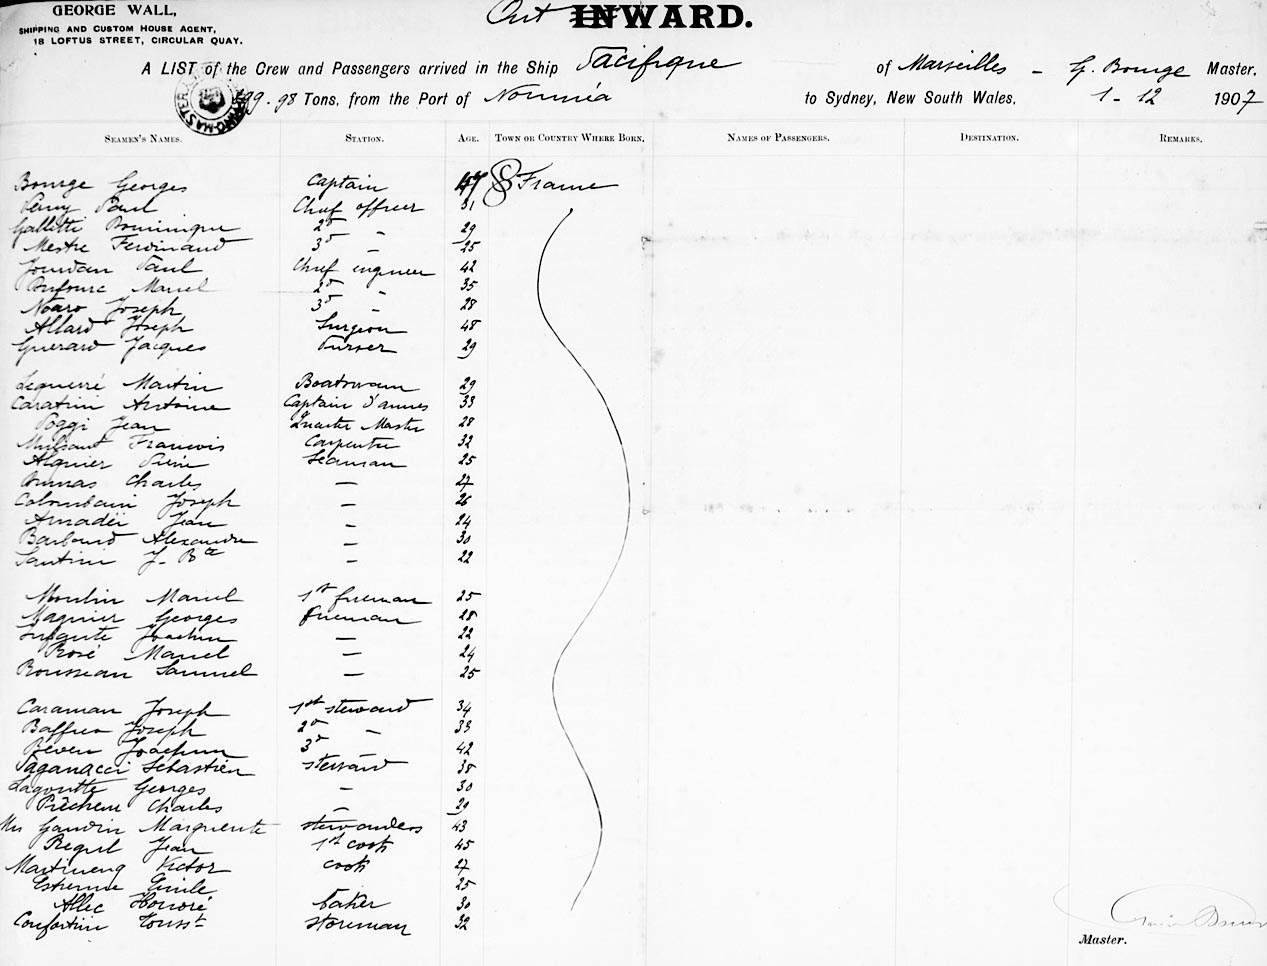 GEORGE WALL,
SHIPPING AND CUSTOM HOUSE AGENT,
18 LOFTUS STREET, CIRCULAR QUAY.
Out INWARD.
A LIST of the Crew and Passengers arrived in the Ship Pacifique of Marseilles - G. Bourge Master,
99.98 Tons, from the Port of Nouméa to Sydney, New South Wales, 1-12 1907
SEAMEN'S NAMES. STATION. AGE. TOWN OR COUNTRY WHERE BORN. NAMES OF PASSENGERS. DESTINATION. REMARKS.
Bourge Georges Captain 47 France
Paul Chief officer 31
Galletti Dominique 2d - 29
Mestre Ferdinand 3d - 25
Jourdan Paul Chief engineer 42
Dufourc Marcel 2d - 35
Noaro Joseph 3d - 28
Allard Joseph Surgeon 48
Guerard Jacques Purser 29
Lequerré Martin Boatswain 29
Caratini Antoine Captain d'armes 33
Poggi Jean Quarter Master 28
François Carpenter 32
Alquier Pierre Seaman 25
Dumas Charles — 27
Colombani Joseph — 26
Amadéi Jean — 24
Barbaud Alexandre — 30
Santini J-Bte — 22
Moulin Marcel 1st fireman 25
Magnier Georges fireman 28
Joachim — 22
Rosé Marcel — 24
Rousseau Samuel — 25
Caraman Joseph 1st steward 34
Baffico Joseph 2d - 33
Béven Joachim 3d 42
Paganacci Sébastien steward 38
Lagoutte Georges - 30
Pêcheur Charles - 29
Mrs Gaudin Marguerite stewardess 43
Jean 1st cook 45
Martineng Victor cook 27
Estienne Emile 25
Allec Honoré baker 30
Confortini Tousst storeman 32
Master.